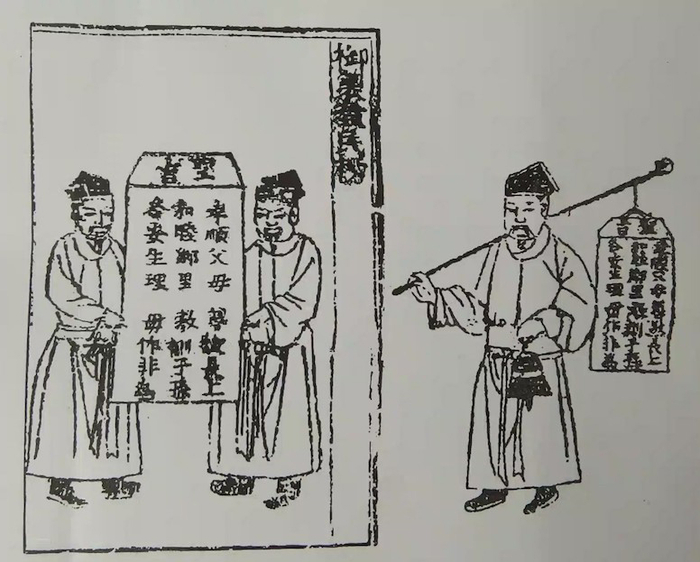 御製教民榜
聖旨
孝順父母 尊敬長上
和睦鄉里 教訓子孫
各安生理 毋作非為
聖旨
孝順父母 尊敬長上
和睦鄉里 教訓子孫
各安生理 毋作非為